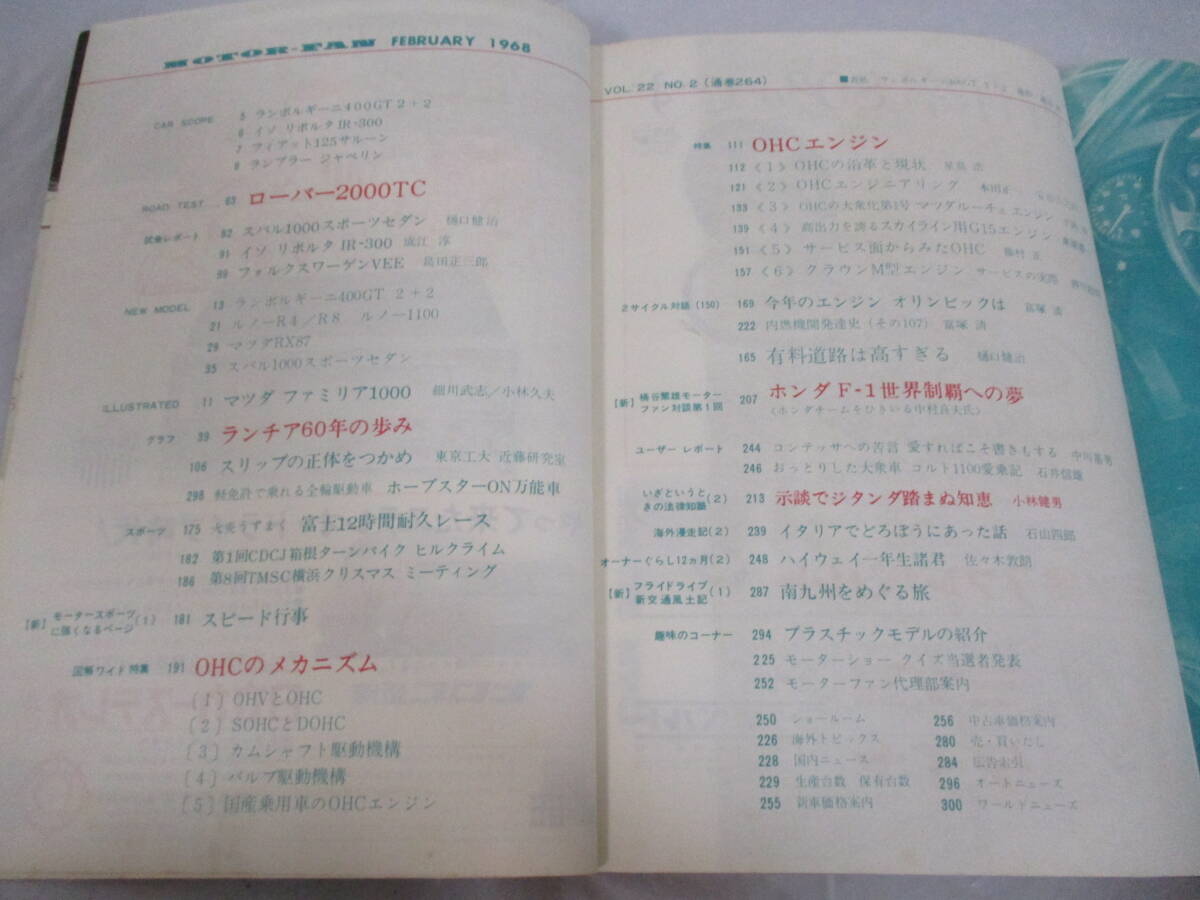 MOTOR-FAN FEBRUARY 1968
CAR SCOPE 5 ランボルギーニ400GT 2+2
6 イソ リボルタIR-300
7 フィアット125サルーン
8 ランブラー ジャベリン
ROAD TEST 63 ローバー2000TC
試乗レポート 82 スバル1000スポーツセダン 樋口健治
91 イソ リボルタ IR-300 成江 淳
99 フォルクスワーゲンVEE 島田正三郎
NEW MODEL 13 ランボルギーニ400GT 2+2
21 ルノーR4/R8 ルノー1100
29 マツダRX87
35 スバル1000スポーツセダン
ILLUSTRATED 11 マツダ ファミリア1000 細川武志/小林久夫
グラフ 39 ランチア60年の歩み
106 スリップの正体をつかめ 東京工大 近藤研究室
298 軽免許で乗れる全輪駆動車 ホープスターON万能車
スポーツ 175 火炎うずまく 富士12時間耐久レース
182 第1回CDCJ箱根ターンパイク ヒルクライム
186 第8回TMSC横浜クリスマス ミーティング
【新】モータースポーツに強くなるページ(1) 181 スピード行事
図解ワイド特集 191 OHCのメカニズム
〔1〕OHVとOHC
〔2〕SOHCとDOHC
〔3〕カムシャフト駆動機構
〔4〕バルブ駆動機構
〔5〕国産乗用車のOHCエンジン
VOL. 22 NO. 2 (通巻264)
特集 111 OHCエンジン
112 〈1〉OHCの沿革と現状 星島 浩
121 〈2〉OHCエンジニアリング
133 〈3〉OHCの大衆化第1号 マツダルーチェ エンジン
139 〈4〉高出力を誇るスカイライン用G15エンジン
151 〈5〉サービス面からみたOHC
157 〈6〉クラウンM型エンジン サービスの実際
2サイクル対話(150) 169 今年のエンジン オリンピックは 富塚 清
222 内燃機関発達史(その107) 富塚 清
165 有料道路は高すぎる 樋口健治
【新】桶谷繁雄モーターファン対談第1回 207 ホンダ F-1世界制覇への夢
〈ホンダチームをひきいる中村良夫氏〉
ユーザー レポート 244 コンテッサへの苦言 愛すればこそ書きもする
246 おっとりした大衆車 コルト1100愛乗記 石井信雄
いざというときの法律知識(2) 213 示談でジタンダ踏まぬ知恵 小林健男
海外漫走記(2) 239 イタリアでどろぼうにあった話 石山四郎
オーナーぐらし12ヵ月(2) 248 ハイウェイ一年生諸君 佐々木敦朗
【新】フライドライブ新交通風土記(1) 287 南九州をめぐる旅
趣味のコーナー 294 プラスチックモデルの紹介
225 モーターショー クイズ当選者発表
252 モーターファン代理部案内
250 ショールーム
226 海外トピックス
228 国内ニュース
229 生産台数 保有台数
255 新車価格案内
256 中古車価格案内
280 売・買いたし
284 広告索引
296 オートニューズ
300 ワールドニューズ